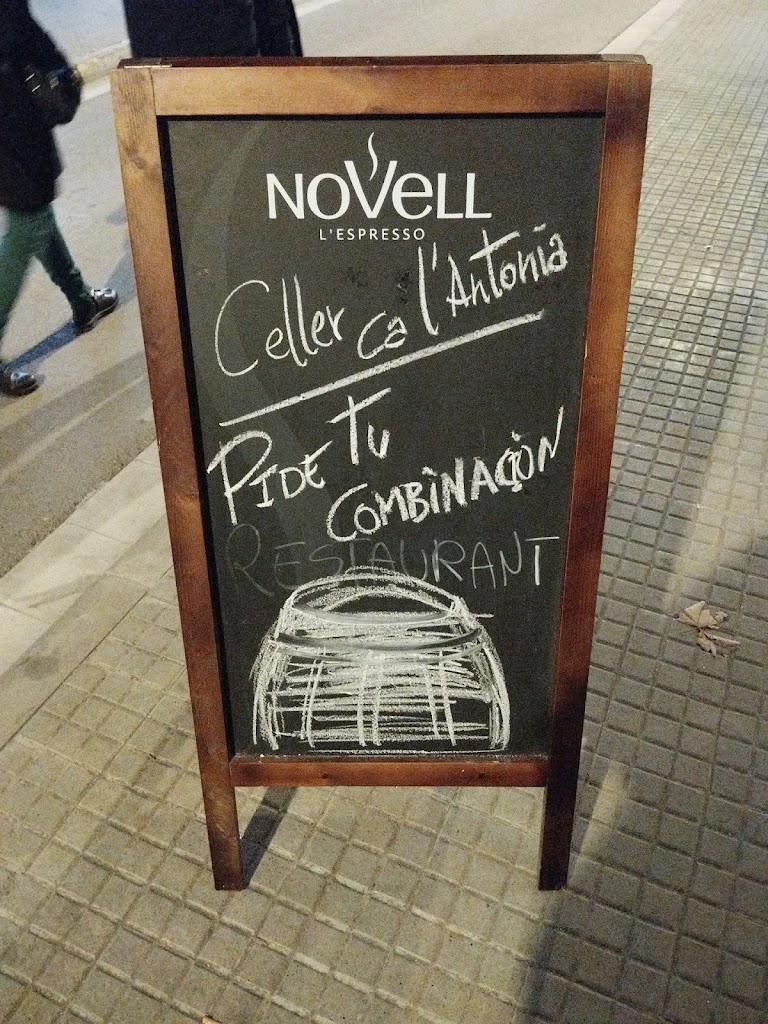 NOVELL
L'ESPRESSO
Celler ca l'Antonia
PIDE TU
COMBINACIÒN
RESTAURANT